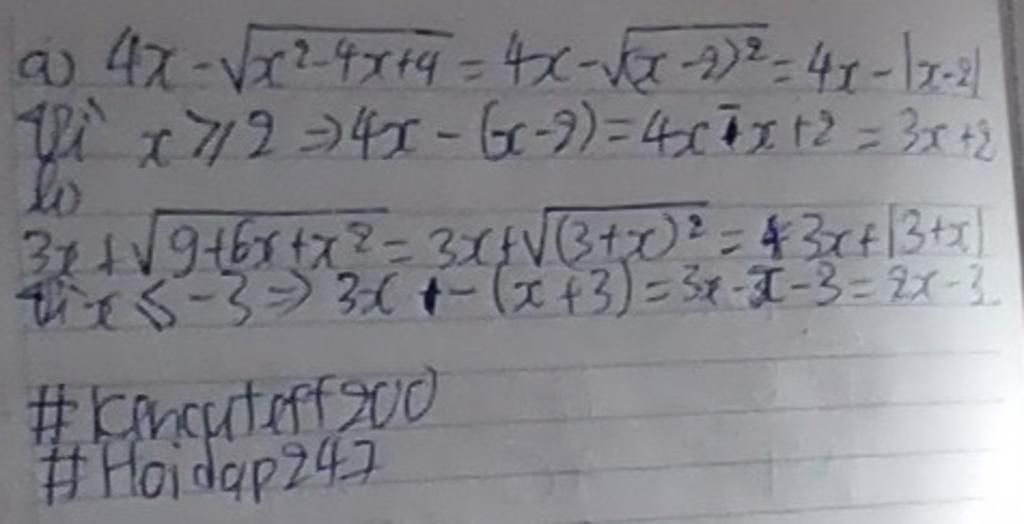 a) 4x - √(x² - 4x + 4) = 4x - √(x - 2)² = 4x - |x - 2|
Vì x ⩾ 2 ⇒ 4x - (x - 2) = 4x - x + 2 = 3x + 2
b)
3x + √(9 + 6x + x²) = 3x + √(3 + x)² = 3x + |3 + x|
Vì x ⩽ -3 ⇒ 3x - (x + 3) = 3x - x - 3 = 2x - 3
#Kencuteff900
#Hoidap247